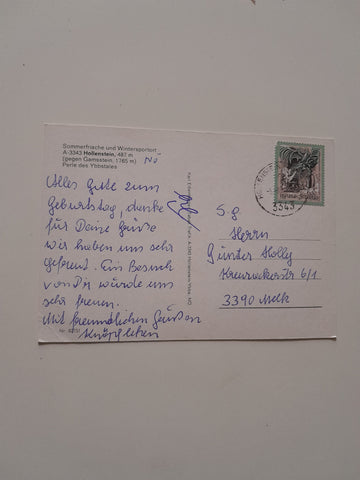 Sommerfrische und Wintersportort
A-3343 Hollenstein, 487 m
(gegen Gamsstein, 1765 m) NÖ
Perle des Ybbstales
Alles Gute zum
Geburtstag, danke
für Deine Grüße
wir haben uns sehr
gefreut. Ein Besuch
von Dir würde uns
sehr freuen.
Mit freundlichen Grüßen
Nr.
S.g.
Herrn
Günter Holly
6/1
3390 Melk
3343